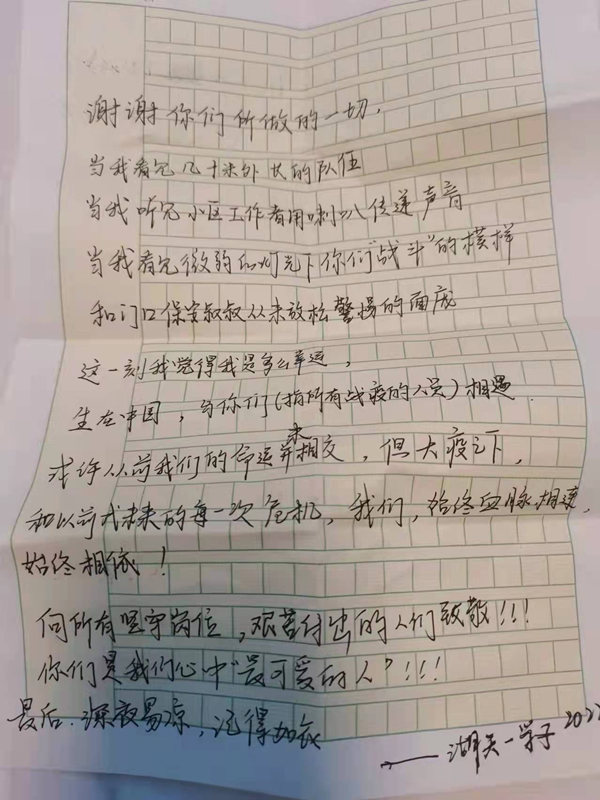 谢谢你们所做的一切，
当我看见几十米外长的队伍
当我听见小区工作者用喇叭传递声音
当我看见微弱的灯光下你们"战斗"的模样
和门口保安叔叔从未放松警惕的面庞
这一刻我觉得我是多么幸运，
生在中国，与你们(指所有战疫的人员)相遇
或许从前我们的命运并未相交，但大疫之下，
和以前或未来的每一次危机，我们，始终血脉相连，
始终相依！
向所有坚守岗位，艰苦付出的人们致敬!!!
你们是我们心中"最可爱的人"!!!
最后.深夜易凉，记得加衣
——湖天一学子